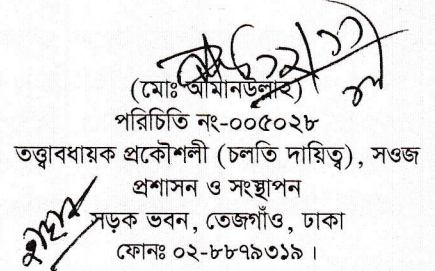 (মোঃ আমানউল্লাহ)
পরিচিতি নং-০০৫০২৮
তত্ত্বাবধায়ক প্রকৌশলী (চলতি দায়িত্ব), সওজ
প্রশাসন ও সংস্থাপন
সড়ক ভবন, তেজগাঁও, ঢাকা
ফোনঃ ০২-৮৮৭৯৩১৯ ।